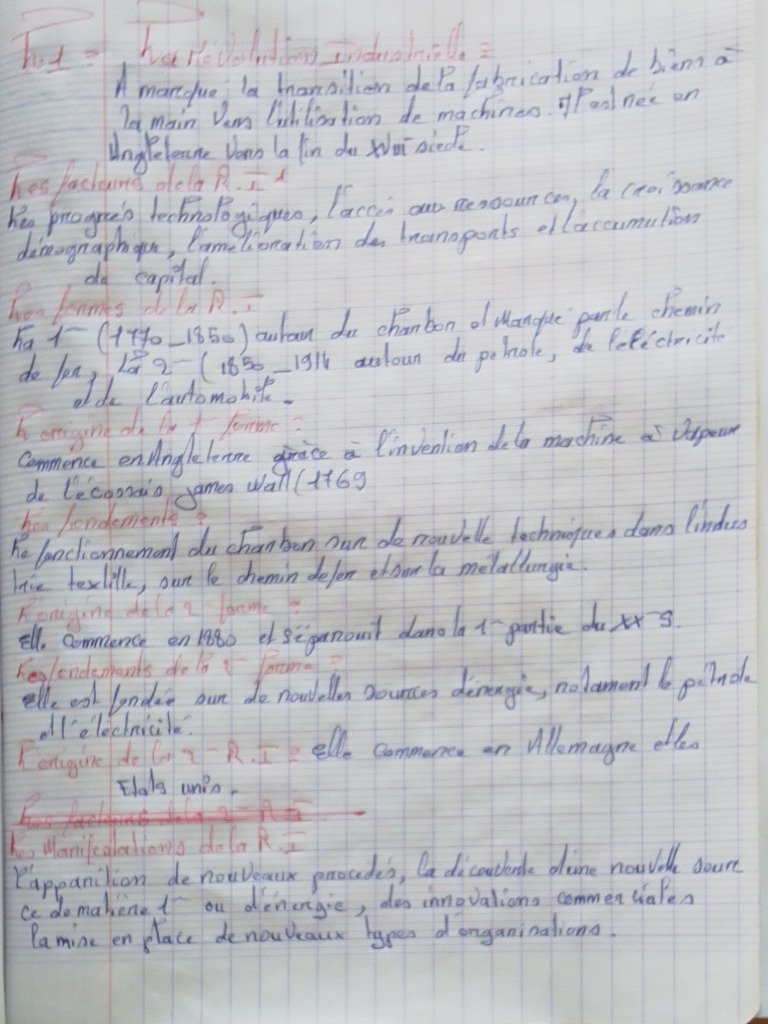 Th.1 = La révolution industrielle =
A marqué la transition de la fabrication de biens à
la main vers l'utilisation de machines. Il est née en
Angleterre vers la fin du XVIII siècle.
Les facteurs de la R.I
Les progrès technologiques, l'accès aux ressources, la croissance
démographique, l'amélioration des transports et l'accumultion
de capital.
Les formes de la R.I
La 1 (1770_1850) autour du charbon et Marqué par le chemin
de fer, La 2 (1850_1914 autour du petrole, de l'eléctricite
et de l'automobile.
L'origine de la 1 forme =
Commence en Angleterre grâce à l'invention de la machine à vapeur
de l'écossais james Watt (1769
Les fondements =
Le fonctionnement du charbon sur de nouvelle techniques dans l'indus
trie textille, sur le chemin de fer et sur la métallurgie.
L'origine de la 2 forme =
elle commence en 1880 et s'épanouit dans la 1 partie du XX S.
Les fondements de la 2 forme =
elle est fondée sur de nouvelles sources d'énergie, notament le pétrole
et l'éléctricité.
L'origine de la 2 R.I = elle commence en Allemagne et les
Etats unis.
Les facteurs de la 2 R.I
Les Manifestations de la R.I
L'apparition de nouveaux procédés, la découverte d'une nouvelle sour
ce de matière 1 ou d'énergie, des innovations commerciales
la mise en place de nouveaux types d'organisations.